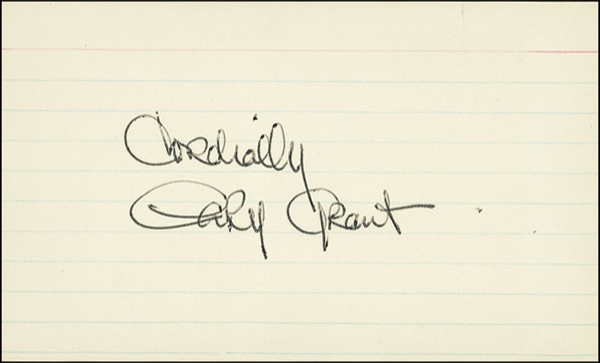 Cordially
Cary Grant